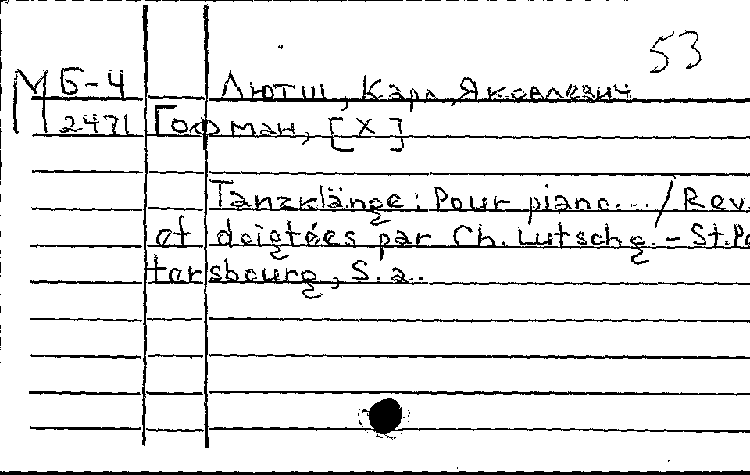 53
М Б-4 Лютш, Карл Яковлевич
2471 Гофман, [Х]
Tanzklänge: Pour piano... / Rev.
et doigtées par Ch. Lutschg. - St.Pe
tersbourg, S. a.